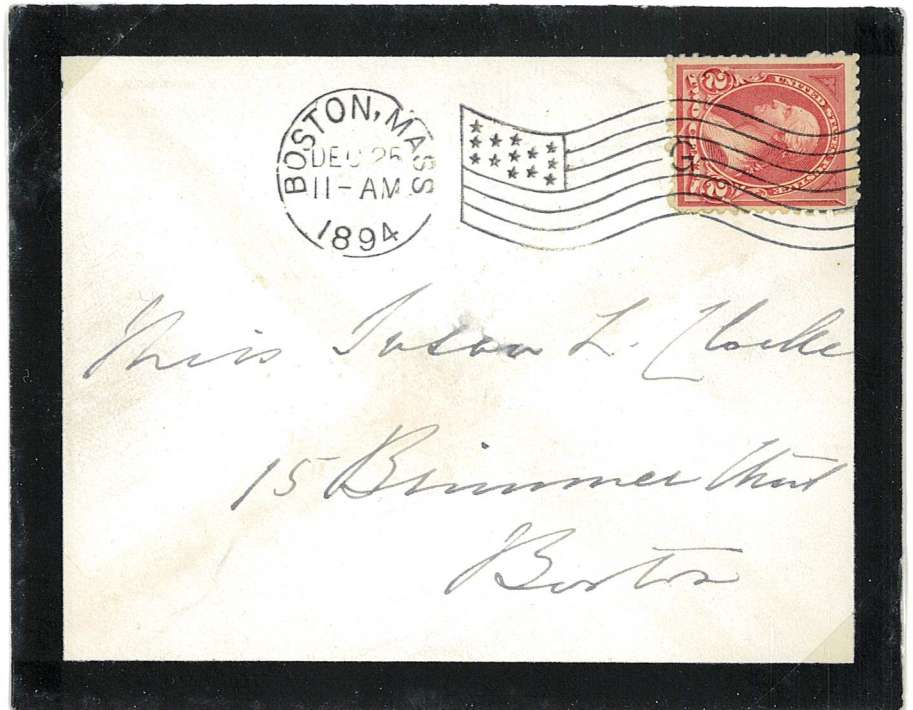 BOSTON, MASS
DEC 25
11-AM
1894
G
UNITED STATES POSTAGE
2 2
Miss Susan L. Clarke
15 Brimmer Street
Boston